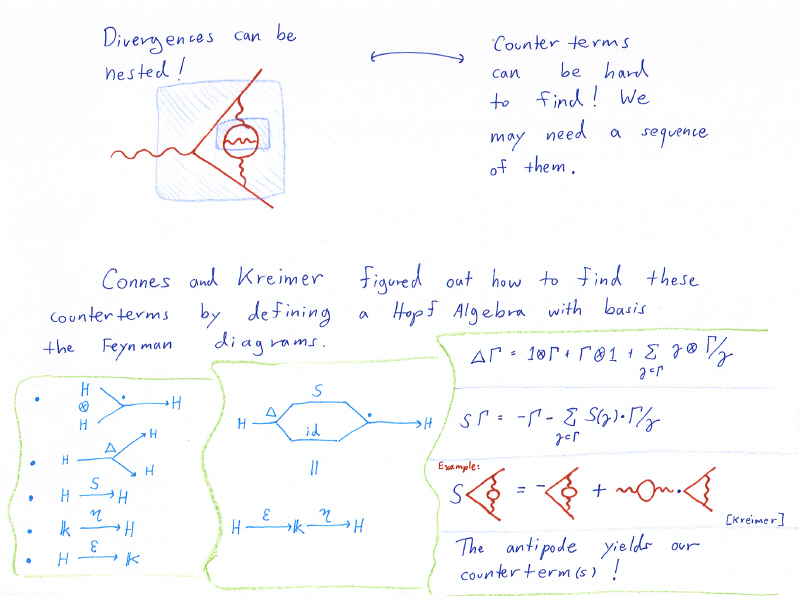 Divergences can be
nested!
Counter terms
can be hard
to find! We
may need a sequence
of them.
Connes and Kreimer figured out how to find these
counterterms by defining a Hopf Algebra with basis
the Feynman diagrams.
H
⊗ · H
H
Δ H
H
H
H S H
𝕜 η H
H ε 𝕜
S
H Δ · H
id
||
H ε 𝕜 η H
ΔΓ = 1⊗Γ + Γ⊗1 + Σ γ⊗Γ/γ
γ⊂Γ
SΓ = -Γ - Σ S(γ)·Γ/γ
γ⊂Γ
Example:
S = - + ·
[Kreimer]
The antipode yields our
counterterm(s)!